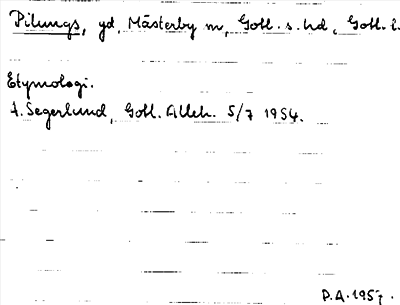 Pilungs, gd, Mästerby sn, Gotl. s. hd, Gotl. l.
Etymologi.
A. Segerlund, Gotl. Alleh. 5/7 1954.
P.A. 1957.